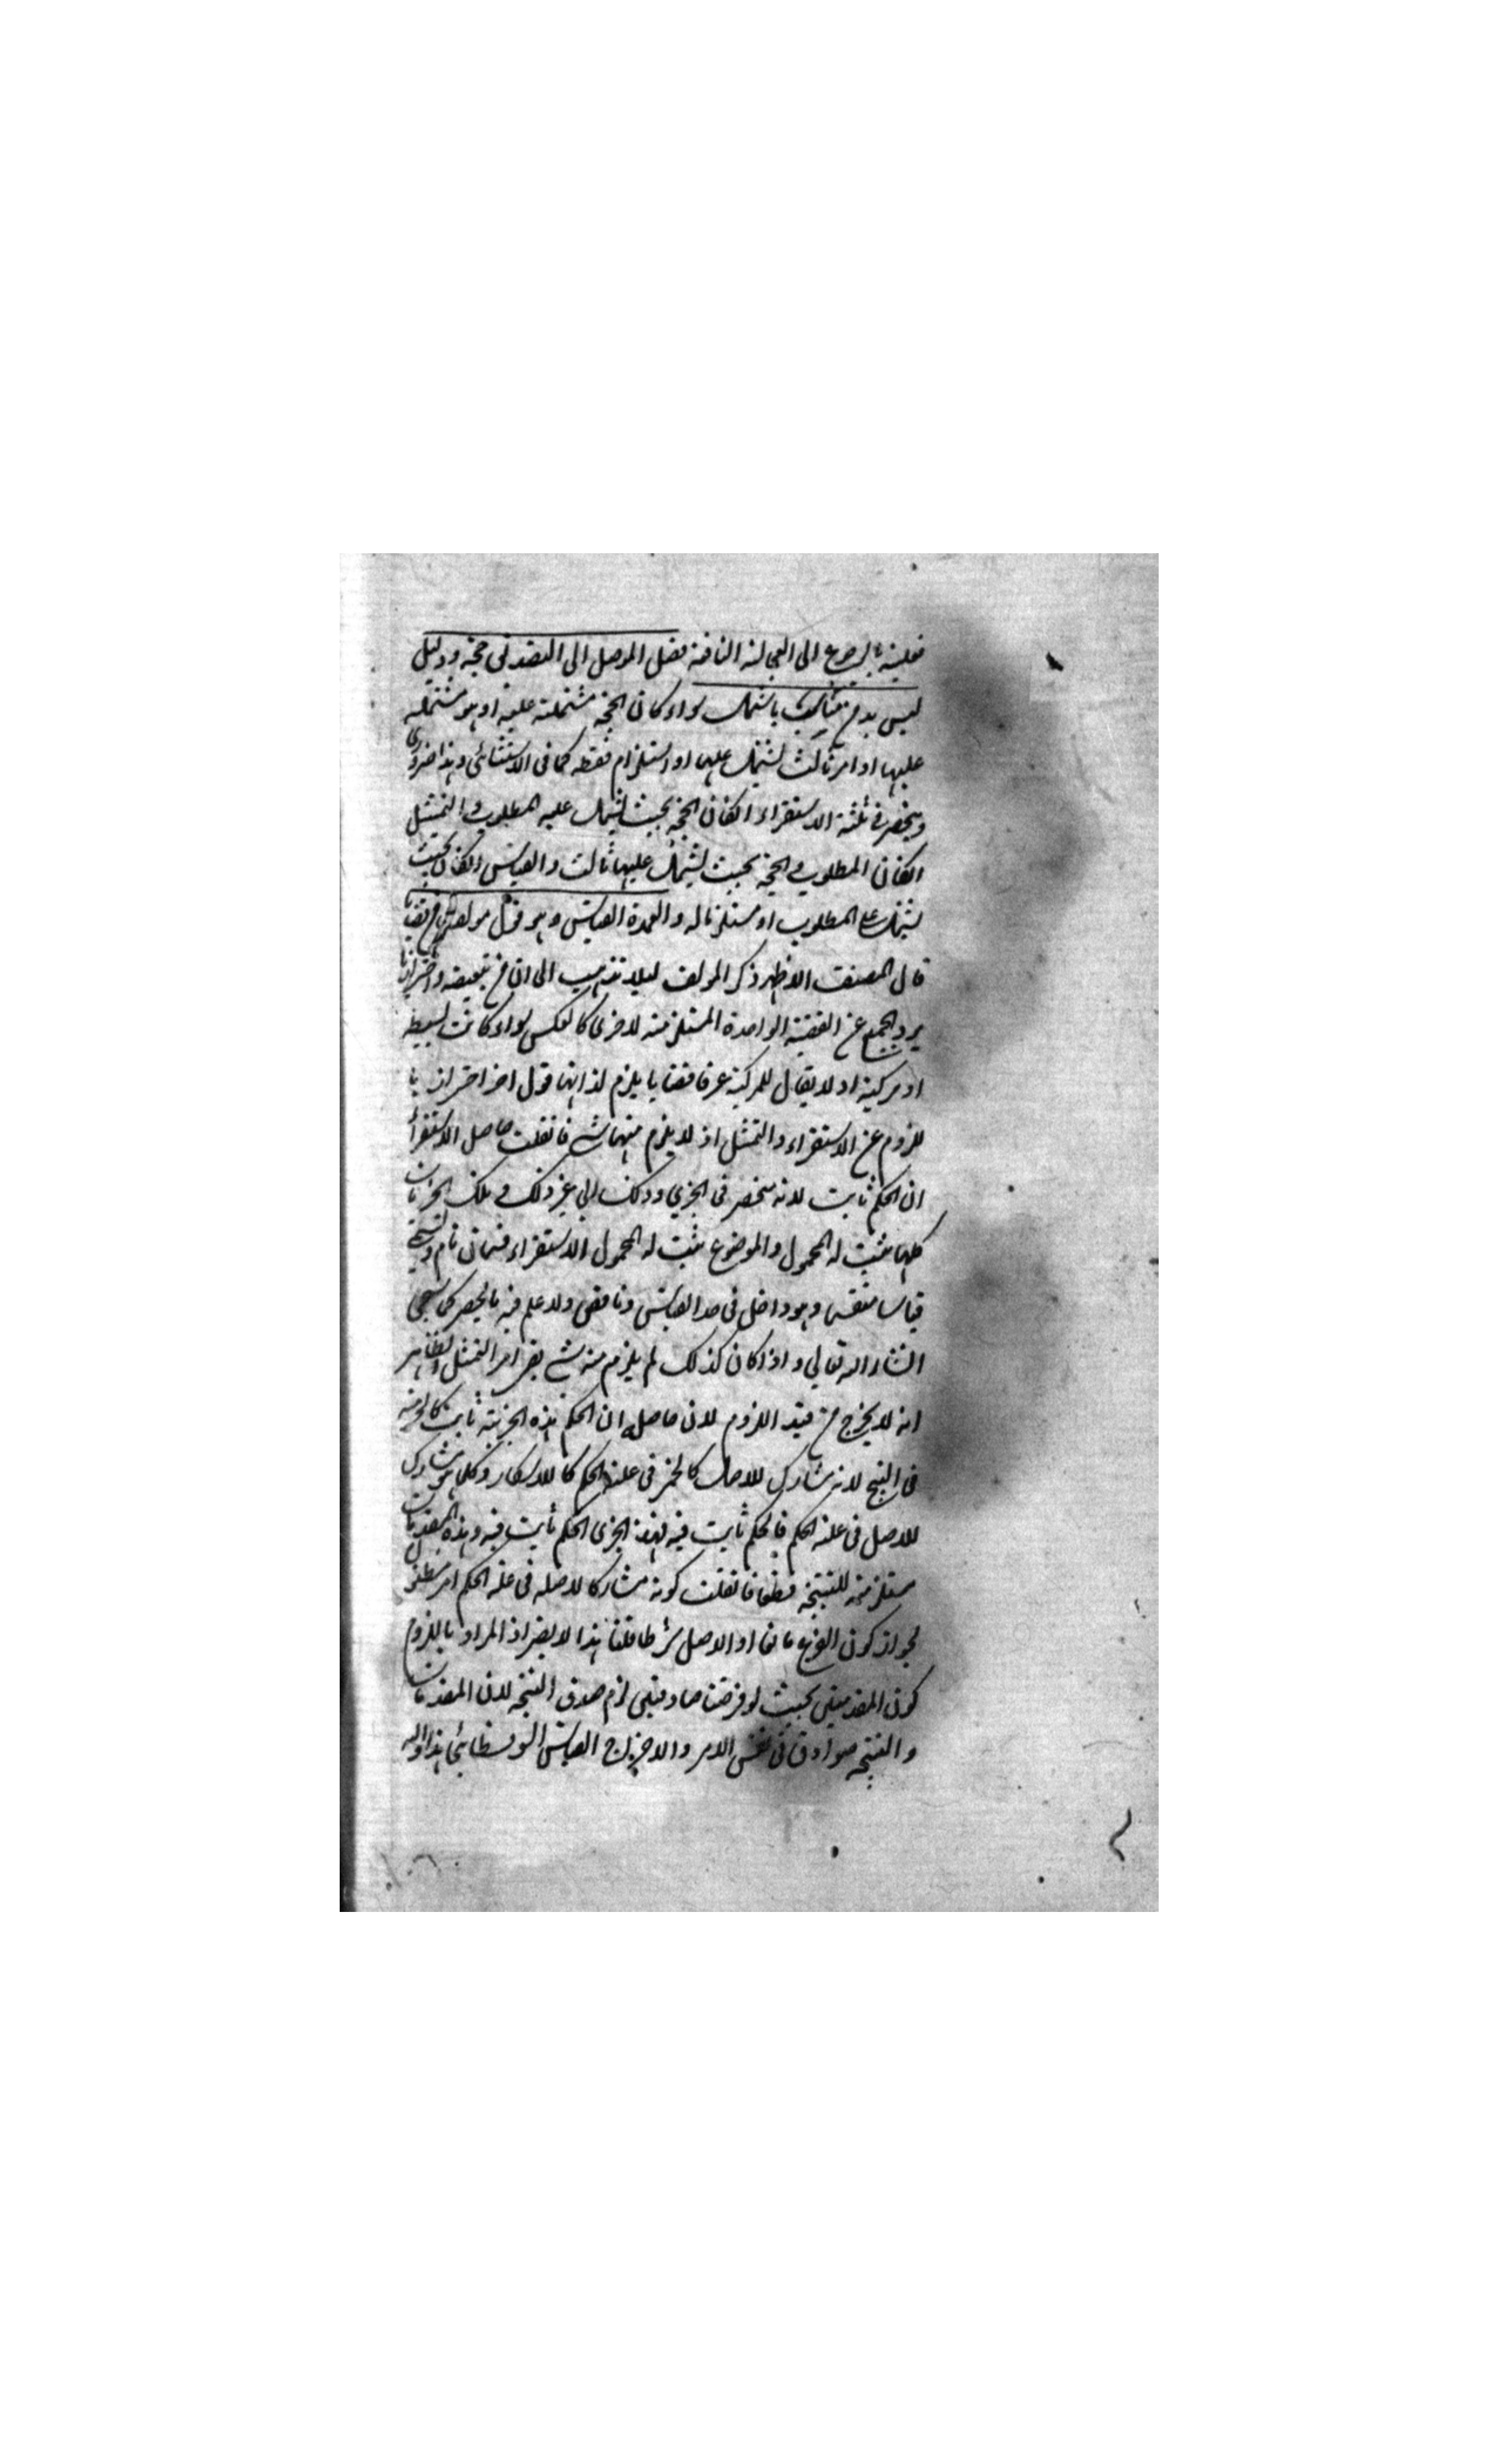 فعليه بالرجوع الى العجالة النافعة فصل الموصل الى التصديق حجة ودليل
ليس بد من مناسبة باشتمال سواء كان الحجة مشتملة عليه او هو مشتمله
عليها او امر ثالث يشتمل عليهما او استلزام فقط كما في الاستثنائي وهذا ضروري
وينحصر في ثلثة الاستقراء انكان الحجة بحيث يشتمل عليه المطلوب والتمثيل
انكان المطلوب والحجة بحيث يشتمل عليها ثالث والقياس انكان بحيث
يشتمل على المطلوب او مستلزما له والعمدة القياس وهو قول مولف من قضايا
قال المصنف الاظهر ذكر المولف ليلا تذهب الى ان من تبعيضه واحترازنا
بهذا الجمع عن القضية الواحدة المستلزمة لاخرى كالعكس سواء كانت بسيطه
او مركبة او لا يقال للمركبة عرفا قضايا يلزم لذاتها قول اخر احتراز با
للزوم عن الاستقراء والتمثيل اذ لا يلزم منهما شے فانقلت حاصل الاستقراء
ان الحكم ثابت لانه منحصر في الجزي وذلك الى غير ذلك و تلك الجزئيات
كلها مثبت له المحمول والموضوع مثبت له المحمول الاستقراء قسمان تام ويسمى
قياسا مقسما وهو داخل في حد القياس وناقص ولا علم فيه بالحصر كما سيجى
انشاء الله تعالي و اذا كان كذلك لم يلزم منه شے بقي امر التمثيل والظاهر
انه لا يخرج من قيد اللزوم لان حاصله ان الحكم بهذه الجزئية ثابت كالحرمة
في البنج لانه مشارك للاصل كالخمر في علة الحكم كالاسكار وكلما هو مشارك
للاصل في علة الحكم فالحكم ثابت فيه فهذا الجزى الحكم ثابت فيه وهذه المقدمات
مستلزمة للنتيجة قطعا فانقلت كونه مشاركا لاصله في علة الحكم امر مظنون
لجواز كون الفرع مانعا او الاصل شرطا قلنا هذا لا يضر اذ المراد باللزوم
كون المقدمتين بحيث لو فرضتا صادقتين لزم صدق النتيجة لان المقدمات
والنتيجة صوادق في نفس الامر والا خرج القياس السوفسطائي هذا والله